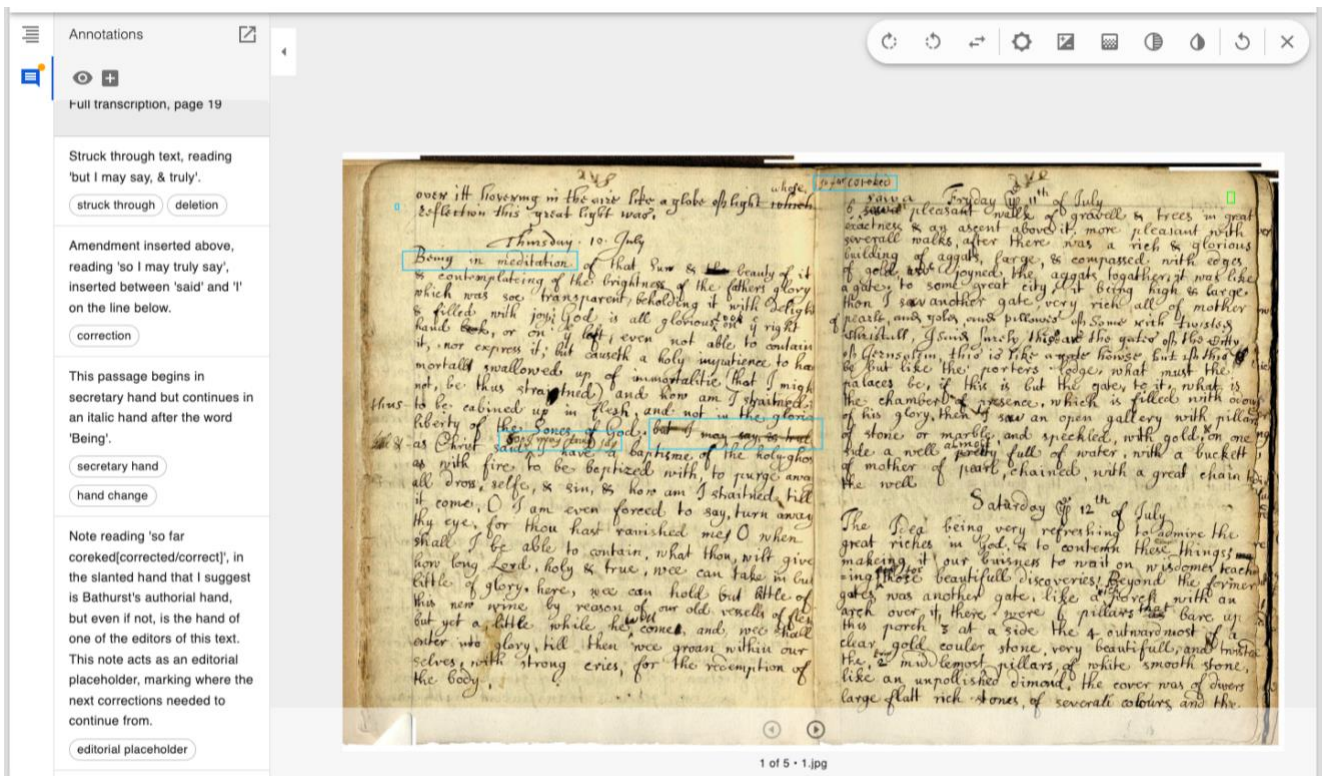 Annotations
Full transcription, page 19
Struck through text, reading
'but I may say, & truly'.
struck through
deletion
Amendment inserted above,
reading 'so I may truly say',
inserted between 'said' and 'I'
on the line below.
correction
This passage begins in
secretary hand but continues in
an italic hand after the word
'Being'.
secretary hand
hand change
Note reading 'so far
coreked[corrected/correct]', in
the slanted hand that I suggest
is Bathurst's authorial hand,
but even if not, is the hand of
one of the editors of this text.
This note acts as an editorial
placeholder, marking where the
next corrections needed to
continue from.
editorial placeholder
whose,
over itt hovering in the aire like a globe of light which
reflection this great light was.
Thursday. 10. July
Being in meditation of that Sun & the beauty of it
& contemplateing of the brightness of the fathers glory
which was soe transparent, beholding it with
& filled with joy; God is all glorious, on y right
hand, or on y left; even not able to contain
it, nor express it; but causeth a holy impatience to ha
mortall swallowed up of immortalitie that I migh
not, be thus straitned) and how am I straitned;
thus to be cabined up in flesh, and not in the glorio
liberty of the Sones of God; but I may say, &
as Christ said, so I may truly say
I have a baptisme of the holy gho
as with fire, to be baptized with, to purge awa
all dross, selfe, & sin, & how am I straitned, till
it come, O I am even forced to say, turn away
thy eye, for thou hast ravished me; O when
shall I be able to contain, what thou, wilt give
how long Lord, holy & true, wee can take in but
little of glory, here, wee can hold but little of
this new wine by reason of our old vessells of
but yet a little while he comes, and wee shall
enter into glory, till then wee groan within our
selves, with strong cries, for the redemption of
the body.
so far coreked
Fryday 11th of July
pleasant walks of gravell & trees in great
exactness & an ascent above it, more pleasant with
severall walks, after there was a rich & glorious
building of aggats, large, & compassed with edges
of gold, joyned the aggats togather, it was like
a gate, to some great city, it being high & large,
then I saw another gate, very rich all of mother
of pearle, and gold, and pillowes of Some with twisted
christall, I said surly this are the gates of the Citty
of Gerusolem, this is like a gate howse, but if this
be but like the porters lodge, what must the
palaces be, if this is but the gate, to it, what is
the chamber of presence, which is filled with
of his glory, then I saw an open gallery with pillar
of stone or marble and speckled, with gold, on one
side a well almost full of water, with a buckett
of mother of pearl, chained, with a great chain to
the well
Saturday 12th of July
The Idea being very refreshing to admire the
great riches in God, & to contemn these things,
makeing it our buisness to wait on wisdomes teach
ing for those beautifull discoveries; Beyond the former
gates was another gate, like a Porch with an
arch over it, there were 6 pillars that bare up
this porch 3 at a side the 4 outwardmost of a
clear gold couler stone, very beautifull, and twisted
the 2 midlemost pillars, of white smooth stone,
like an unpollished dimond, the cover was of divers
large flatt rich stones, of severall colours, and the
1 of 5 • 1.jpg